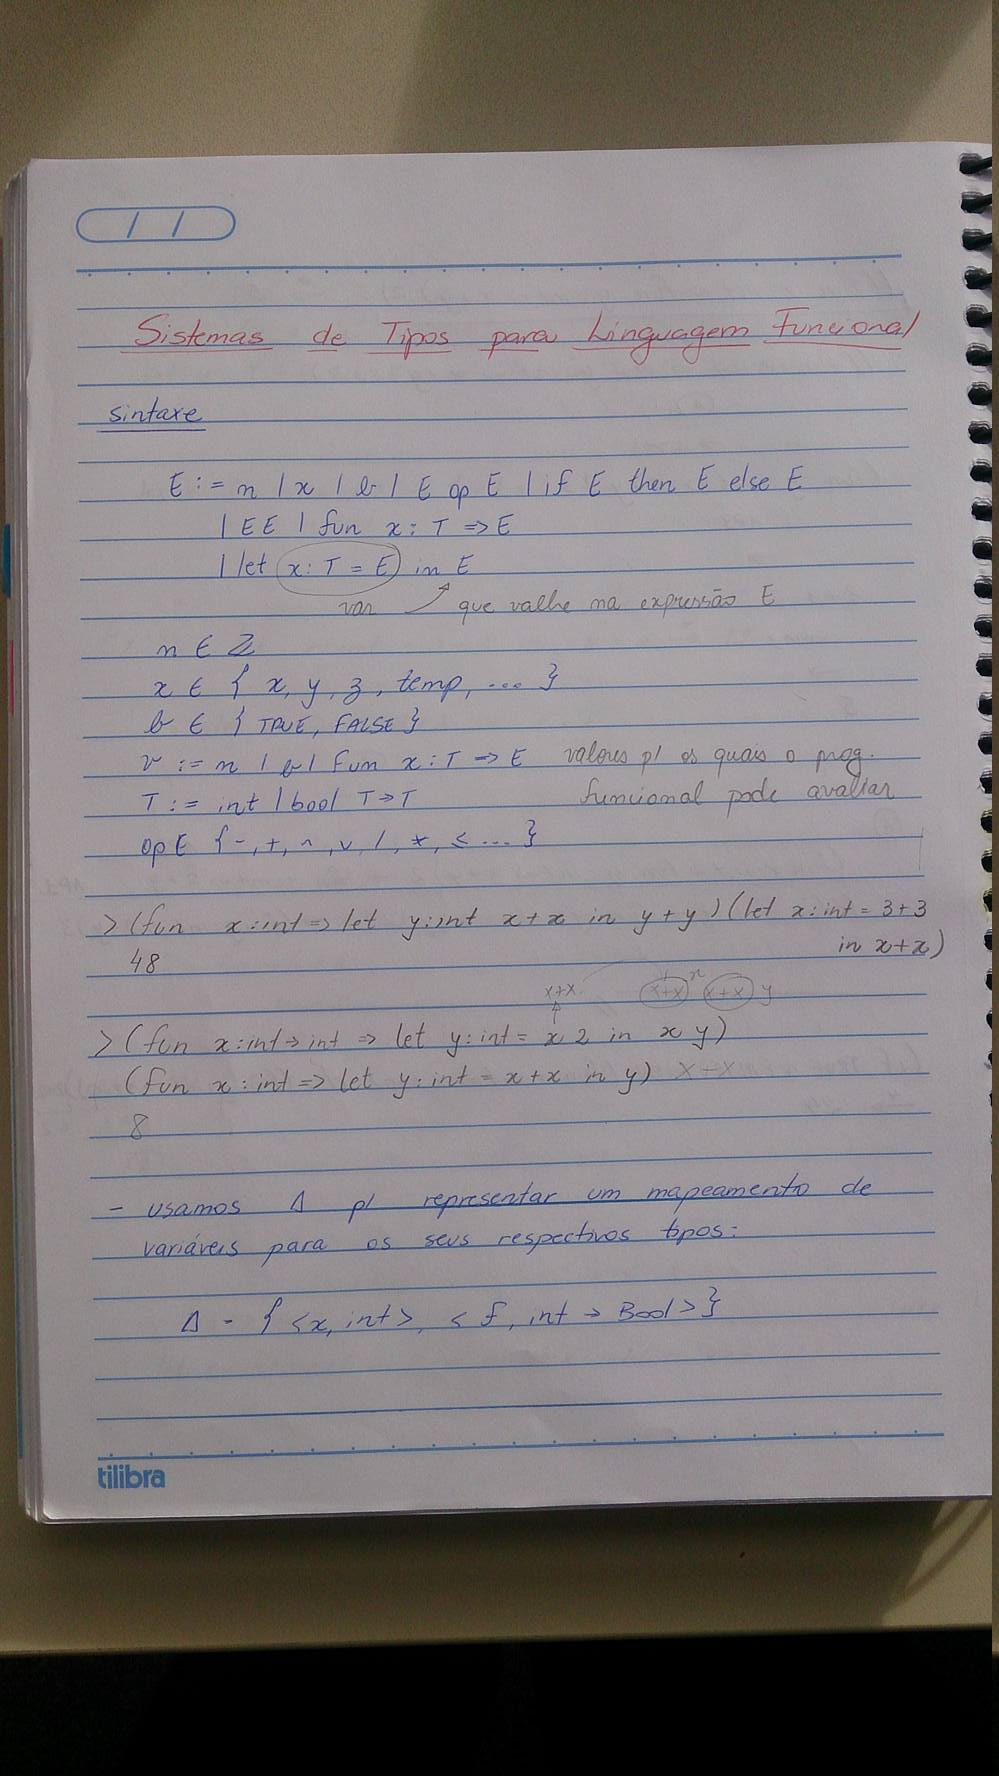 Sistemas de Tipos para Linguagem Funcional
sintaxe
E := n | x | b | E op E | if E then E else E
| EE | fun x: T => E
| let x: T = E in E
var que valhe na expressão E
n ∈ Z
x ∈ { x, y, z, temp, ... }
b ∈ { TRUE, FALSE }
v := n | b | fun x: T => E valores p/ os quais o prog.
T := int | bool T → T funcional pode avaliar
op ∈ { -, +, ^, v, /, *, ≤ ... }
> (fun x: int => let y: int x + x in y + y) (let x: int = 3 + 3
in x + x)
48
x+x x+x x+x y
> (fun x: int → int => let y: int = x 2 in x y)
(fun x: int => let y: int = x + x in y) x+x
8
- usamos Δ p/ representar um mapeamento de
variáveis para os seus respectivos tipos:
Δ - { <x, int>, < f, int → Bool > }
tilibra